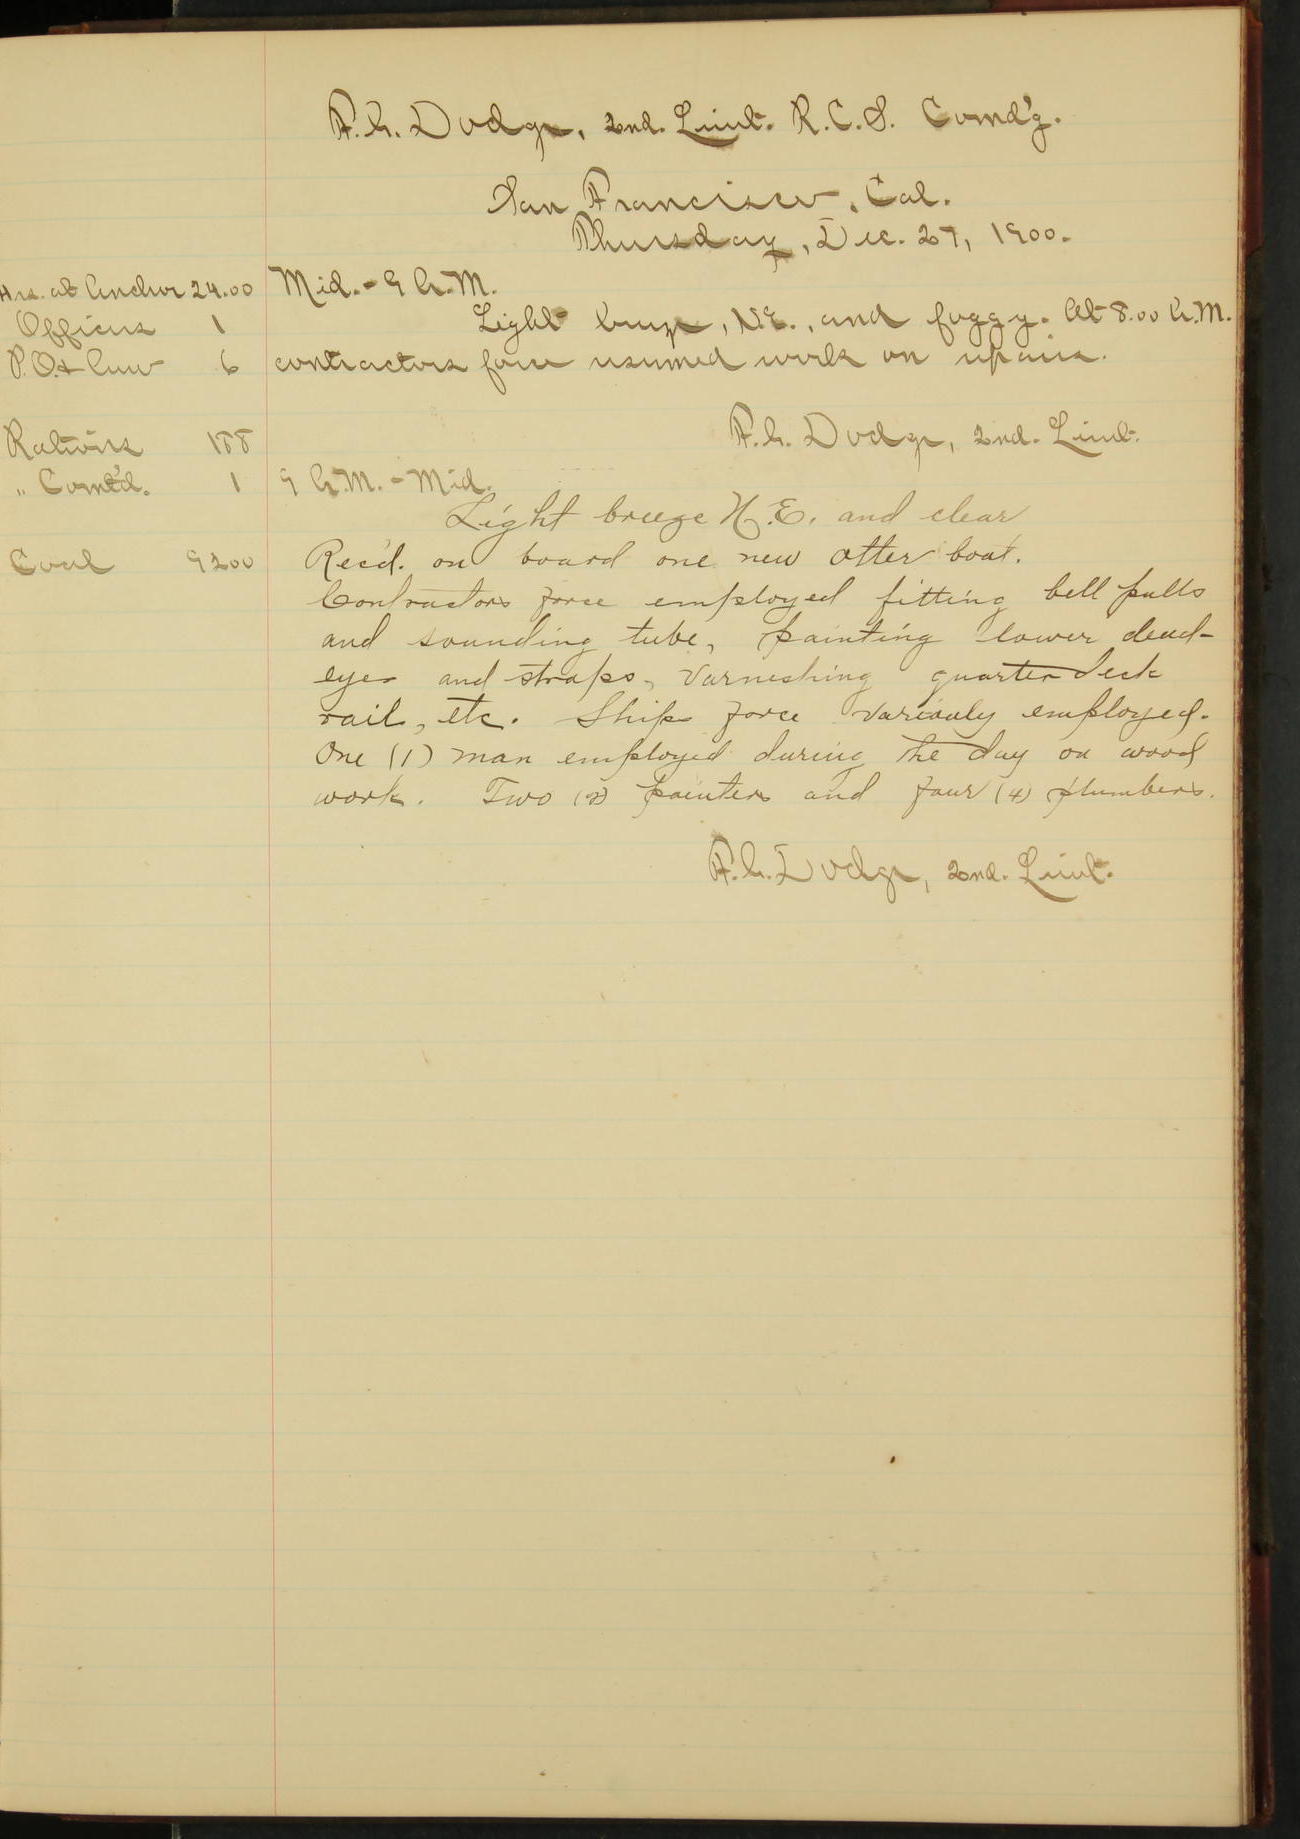 F.G. Dodge, 2nd. Lieut. R.C.S. Comd'g.
San Francisco, Cal.
Thursday, Dec. 27, 1900.
Hrs. at Anchor 24.00
Mid. - 9 A.M.
Officers 1
Light breeze, N.E., and foggy. At 8.00 A.M.
P.O. & Crew 6
contractors force resumed work on repairs.
F.G. Dodge, 2nd. Lieut.
Rations 188
" Comt'd. 1
9 A.M. - Mid.
Light breeze N.E. and clear
Coal 9200
Rec'd. on board one new otter boat.
Contractors force employed fitting bell pulls
and sounding tube, painting lower dead-
eyes and straps, varnishing quarter deck
rail, etc. Ships force variously employed.
One (1) man employed during the day on wood
work. Two (2) painters and four (4) plumbers.
F.G. Dodge, 2nd. Lieut.